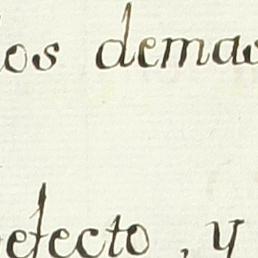 los demas
efecto, y